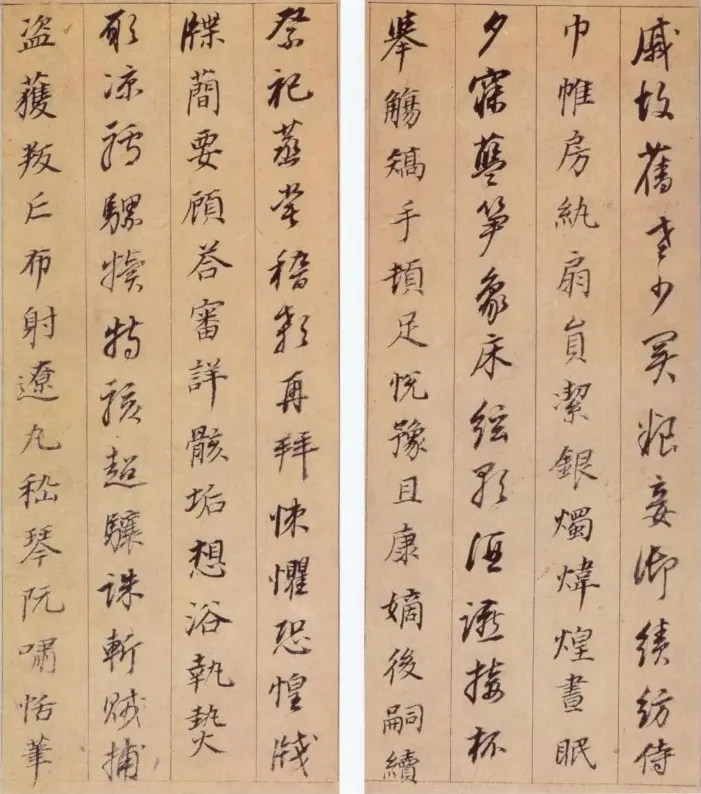 戚故舊老少異粮妾御績紡侍
巾帷房紈扇員潔銀燭煒煌晝眠
夕寐藍笋象床絃歌酒讌接杯
舉觴矯手頓足悅豫且康嫡後嗣續
祭祀蒸甞稽顙再拜悚懼恐惶牋
牒蕳要顧荅審詳骸垢想浴執熱
願凉驢騾犢特駭超驤誅斬賊捕
盗獲叛亡布射遼丸嵇琴阮嘯恬筆